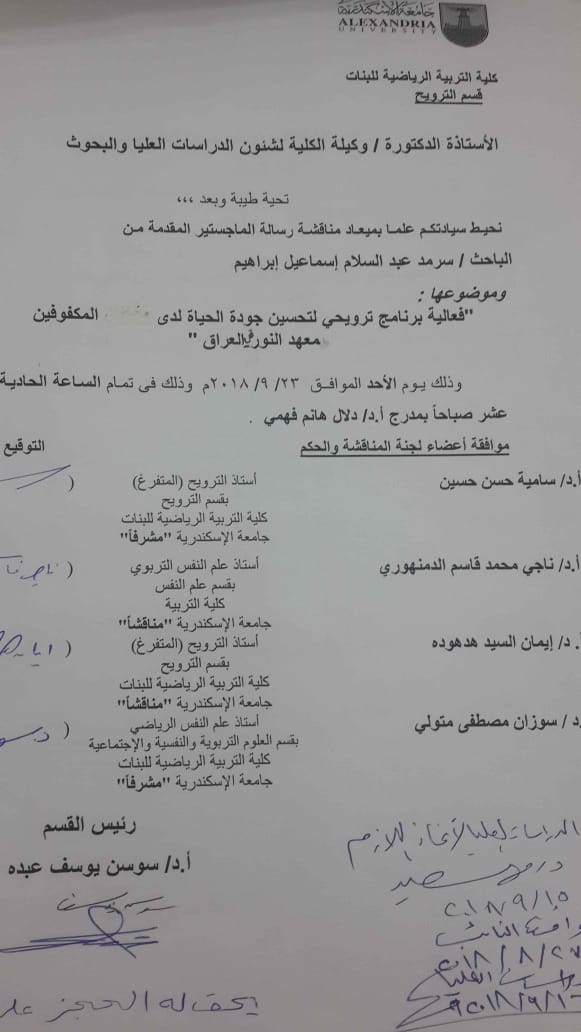 جامعة الإسكندرية
ALEXANDRIA
UNIVERSITY
كلية التربية الرياضية للبنات
قسم الترويح
الأستاذة الدكتورة / وكيلة الكلية لشئون الدراسات العليا والبحوث
تحية طيبة وبعد ،،،
نحيط سيادتكم علما بميعاد مناقشة رسالة الماجستير المقدمة من
الباحث / سرمد عبد السلام إسماعيل إبراهيم
وموضوعها :
"فعالية برنامج ترويحي لتحسين جودة الحياة لدى المكفوفين
معهد النور في العراق "
وذلك يوم الأحد الموافق ٢٣/ ٩/ ٢٠١٨م وذلك فى تمام الساعة الحادية
عشر صباحاً بمدرج أ.د/ دلال هانم فهمي .
موافقة أعضاء لجنة المناقشة والحكم التوقيع
أ.د/ سامية حسن حسين أستاذ الترويح (المتفرغ) (
بقسم الترويح
كلية التربية الرياضية للبنات
جامعة الإسكندرية "مشرفاً"
أ.د/ ناجي محمد قاسم الدمنهوري أستاذ علم النفس التربوي (
بقسم علم النفس
كلية التربية
جامعة الإسكندرية "مناقشاً"
أ. د/ إيمان السيد هدهوده أستاذ الترويح (المتفرغ) (
بقسم الترويح
كلية التربية الرياضية للبنات
جامعة الإسكندرية "مناقشاً"
د / سوزان مصطفى متولي أستاذ علم النفس الرياضي (
بقسم العلوم التربوية والنفسية والإجتماعية
كلية التربية الرياضية للبنات
جامعة الإسكندرية "مشرفاً"
رئيس القسم
أ.د/ سوسن يوسف عبده
الدراسات العليا لاتخاذ اللازم
٢٠١٨/٩/١٥
٢٠١٨/٨/٢٧
٢٠١٨/٩/١٦
يحق له الحجز